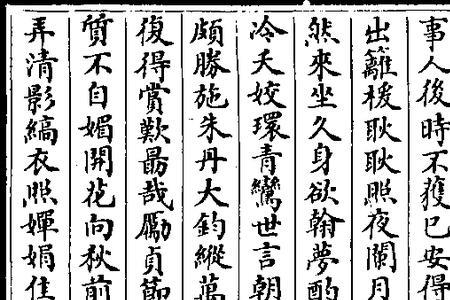 事人後時不獲已安得
出籬楥耿耿照夜闌月
然來坐久身欲翰夢酌
冷夭姣環青鸞世言朝
頗勝施朱丹大鈞縱萬
復得賞歎勗哉勵貞節
質不自媚開花向秋前
弄清影縞衣照嬋娟佳